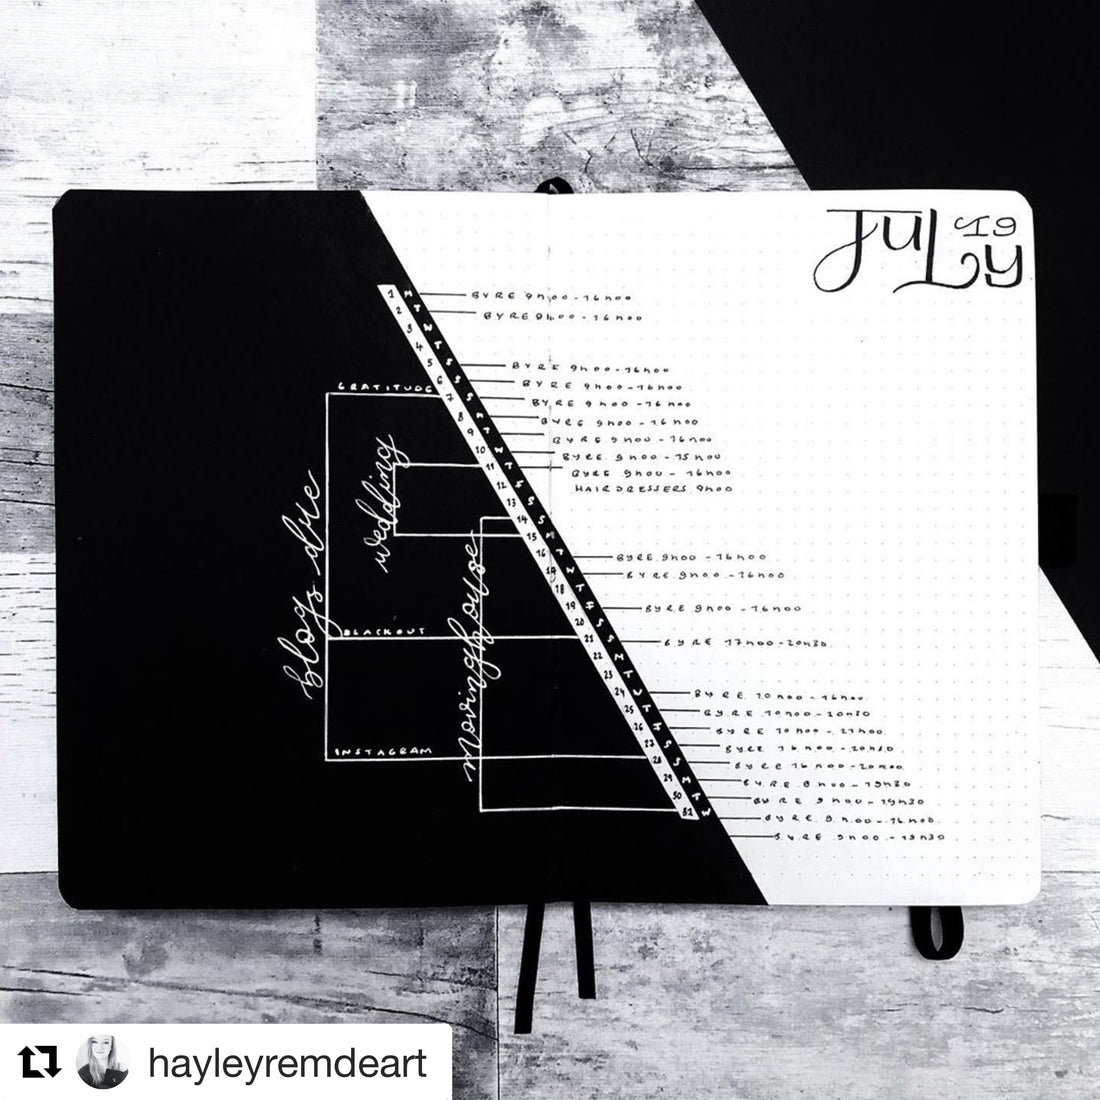 JULY
19
1 M BYRE 9h00-16h00
2 T BYRE 9h00-16h00
3 W
4 T
5 F BYRE 9h00-16h00
6 S BYRE 9h00-16h00
7 S BYRE 9h00-16h00
8 M BYRE 9h00-16h00
9 T BYRE 9h00-16h00
10 W BYRE 9h00-15h00
11 T BYRE 9h00-16h00
HAIRDRESSERS 9h00
12 F
13 S
14 S
15 M
16 T BYRE 9h00-16h00
17 W BYRE 9h00-16h00
18 T
19 F BYRE 9h00-16h00
20 S
21 S BYRE 17h00-20h30
22 M
23 T
24 BYRE 10h00-16h00
25 T BYRE 10h00-20h30
26 F BYRE 10h00-21h00
27 S BYRE 16h00-20h30
28 S BYRE 16h00-20h00
29 M BYRE 9h00-19h30
30 T BYRE 9h00-19h30
31 W BYRE 9h00-16h00
BYRE 9h00-19h30
GRATITUDE
wedding
blogs due
BLACKOUT
moving house
INSTAGRAM
hayleyremdeart